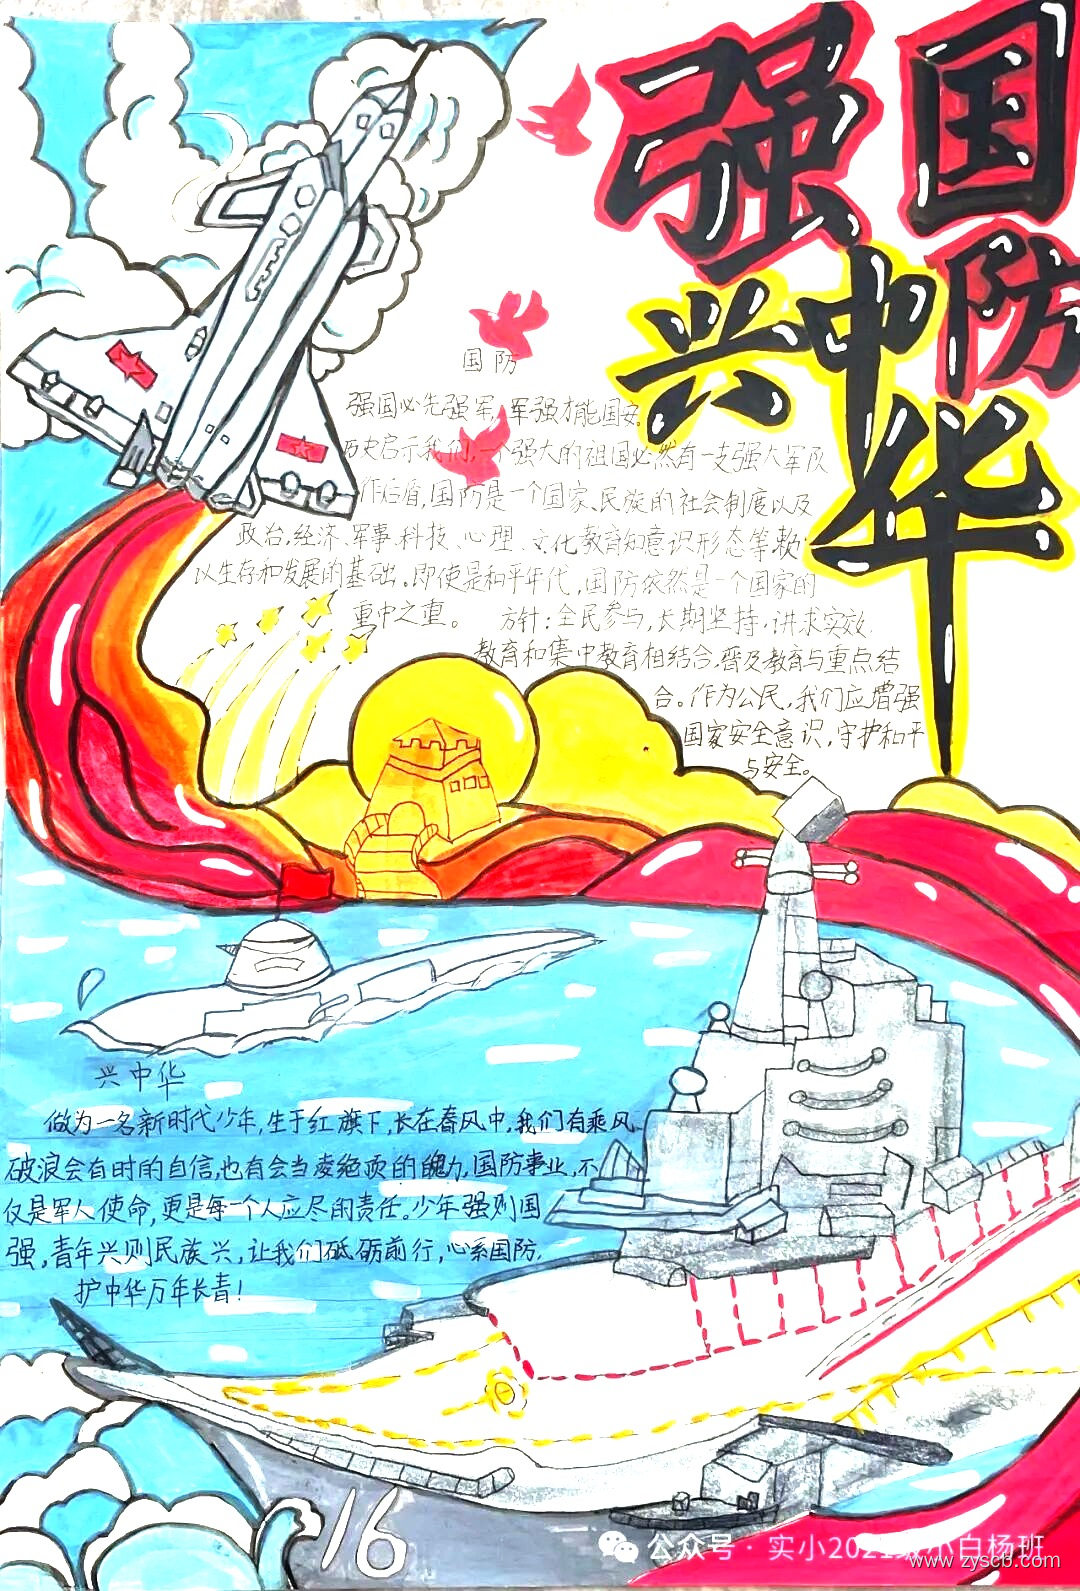 强国防
兴中华
国防
强国必先强军,军强才能国安。
历史启示我们,一个强大的祖国必然有一支强大军队
作后盾,国防是一个国家、民族的社会制度以及
政治,经济、军事、科技、心理、文化教育知意识形态等赖
以生存和发展的基础。即使是和平年代,国防依然是一个国家的
重中之重。 方针:全民参与,长期坚持,讲求实效.
教育和集中教育相结合,普及教育与重点结
合。作为公民,我们应增强
国家安全意识,守护和平
与安全。
兴中华
做为一名新时代少年,生于红旗下,长在春风中,我们有乘风
破浪会有时的自信,也有会当凌绝顶的魄力,国防事业,不
仅是军人使命,更是每一个人应尽的责任。少年强则国
强,青年兴则民族兴,让我们砥砺前行,心系国防,
护中华万年长青!
16
公众号·实小2021级小白杨班
www.zyscb.com